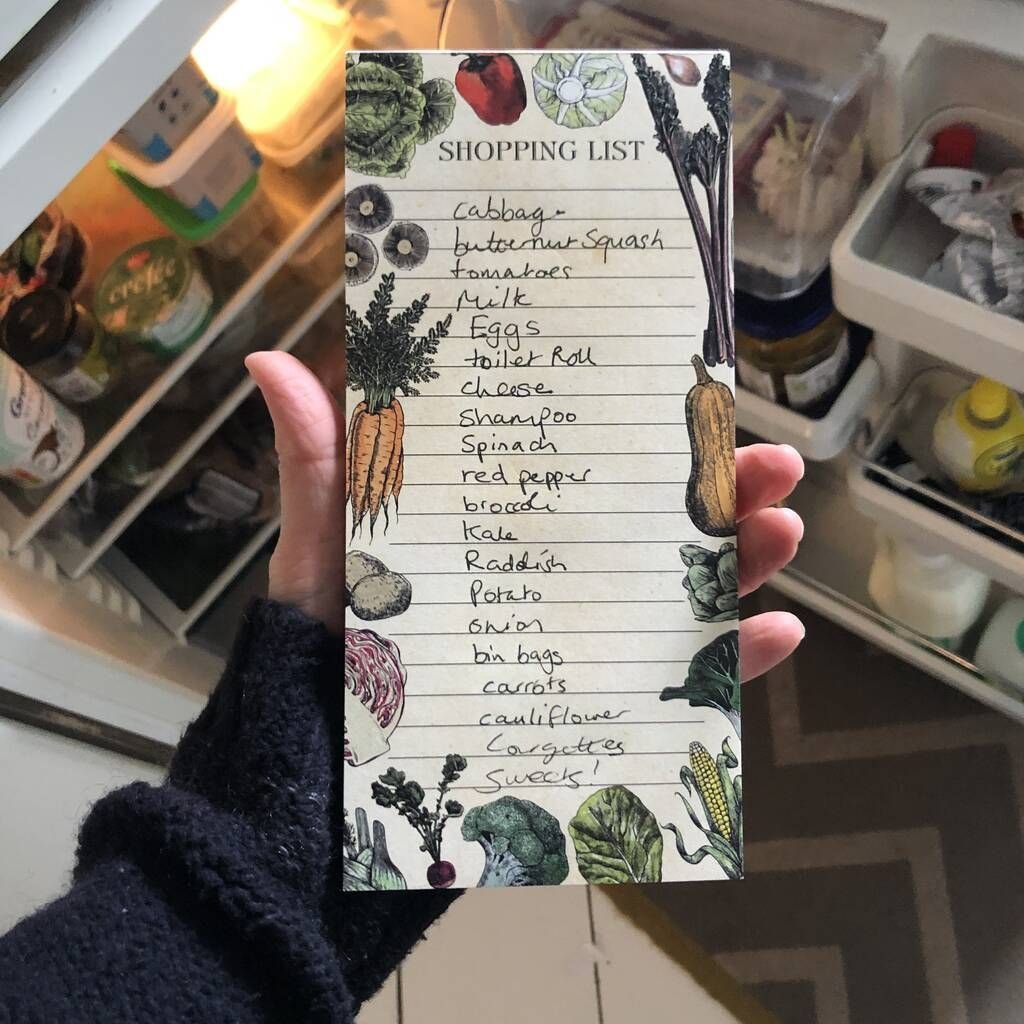 SHOPPING LIST
cabbage
butternut Squash
tomatoes
Milk
Eggs
toilet Roll
cheese
Shampoo
Spinach
red pepper
broccoli
Kale
Raddish
Potato
onion
bin bags
carrots
cauliflower
Courgettes
Sweets!